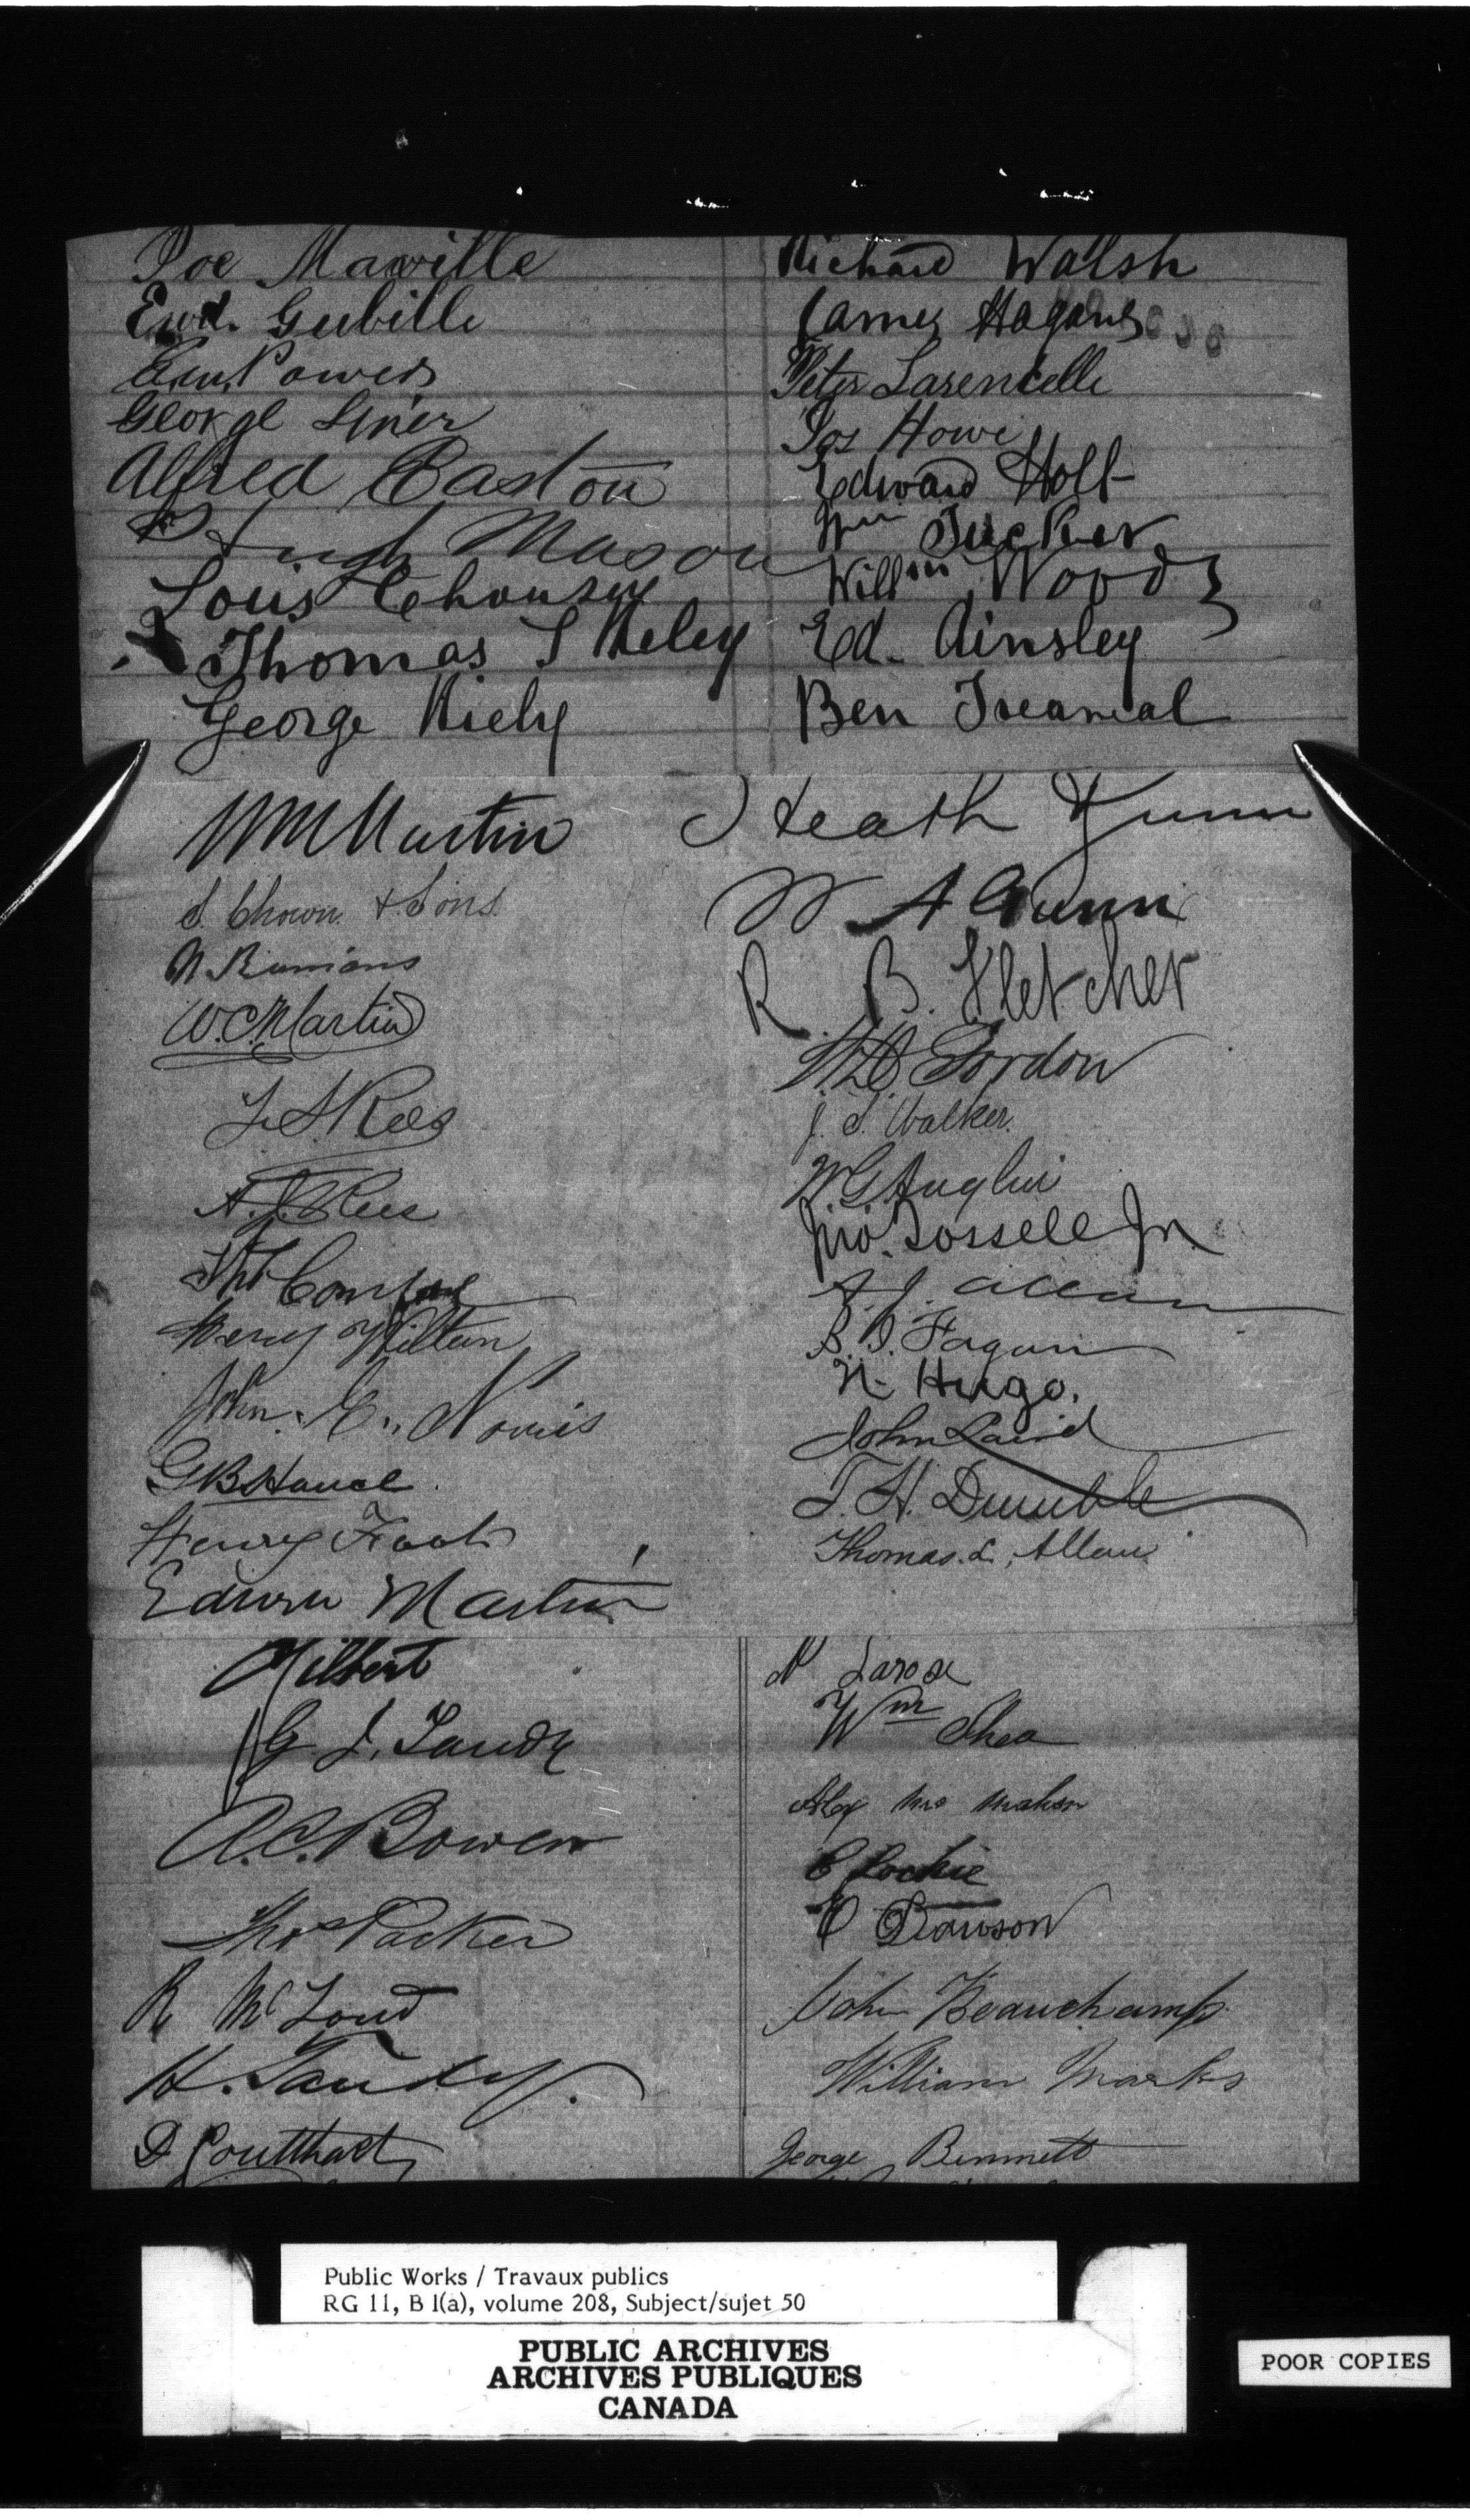 Joe Maville
Ewd. Gubille
Powers
George
Alfred Easton
Hugh Mason
Louis
Thomas J Kiely
George Kiely
Richard Walsh
James Hagans
Peter Larencelle
Jos Howe
Edward Holt
Wm Tucker
Willm Woods
Ed. Ainsley
Ben Treameal
Wm Martin
S. Chown & Sons
N. Runions
W. C. Martin
L. S. Rees
A. J. Rees
Thos
Henry Wilton
John. C. Norris
G B
Henry Foot
Edwin Martin
Heath Gunn
W A Gunn
R. B. Fletcher
Gordon
J. S. Walker.
W. G. Anglin
Jno. Tossell Jr
A. J. Allan
B. J. Fagan
N. Hugo.
John Laird
T. H. Dumble
Thomas. L. Allan
Gilbert
G J. Tandy
A. C. Bowen
Thos Packer
R McLoud
H. Tandy.
D Coulthart
N Larose
Wm Shea
Alex Mc Mahon
C Lockie
Dawson
John Beauchamp.
William Marks
George Bennett
Public Works / Travaux publics
RG 11, B 1(a), volume 208, Subject/sujet 50
PUBLIC ARCHIVES
ARCHIVES PUBLIQUES
CANADA
POOR COPIES